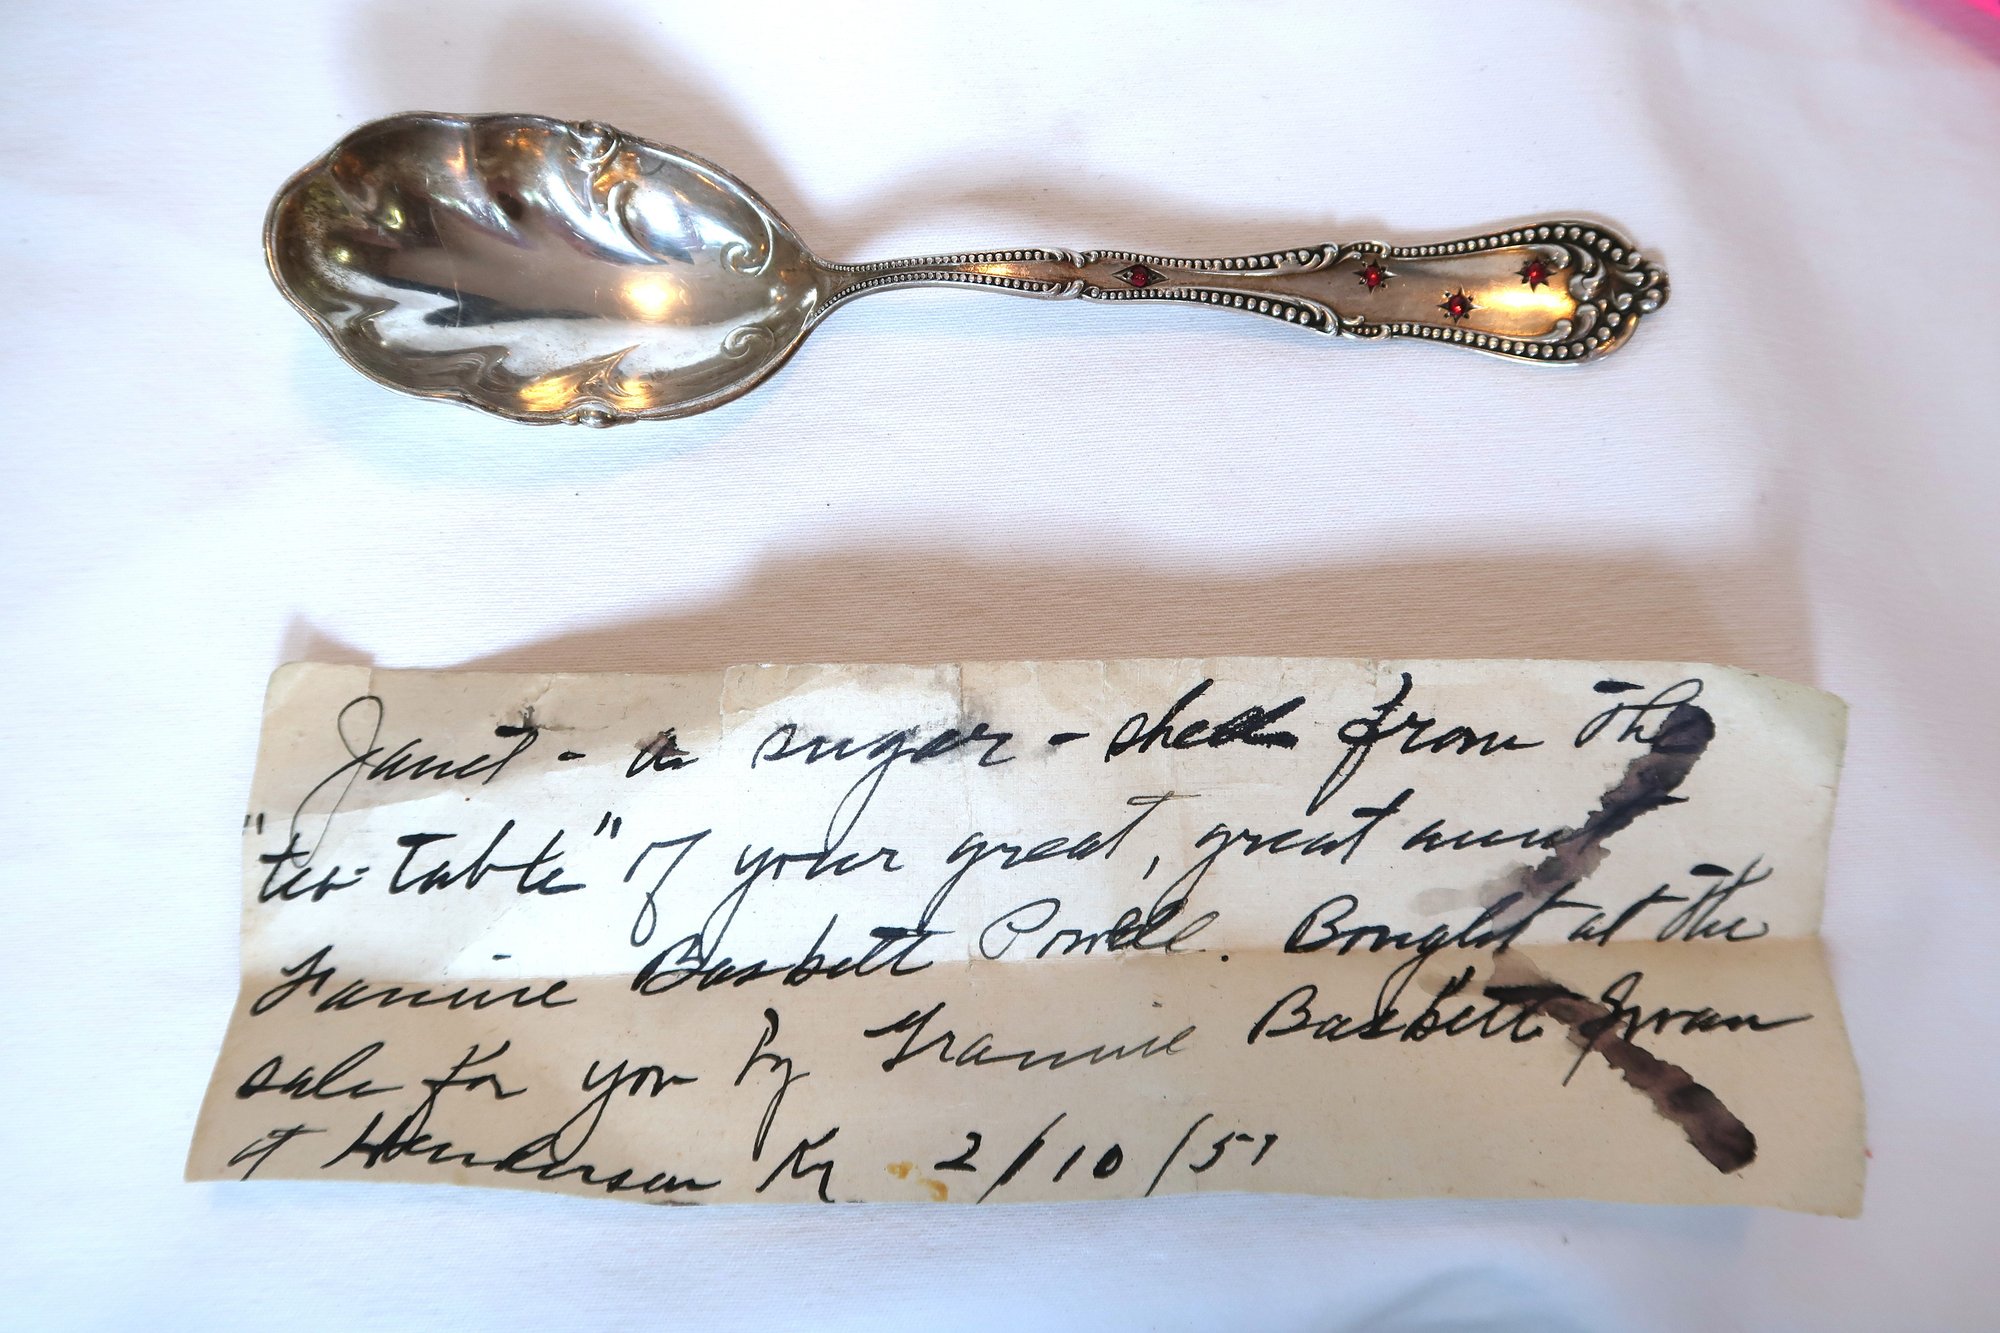 Janet - a sugar - shell from the
"tea-table" of your great, great aunt
Fannie Basket Powell. Bought at the
sale for you by Frannie Baskett Swan
at Henderson Ky 2/10/57